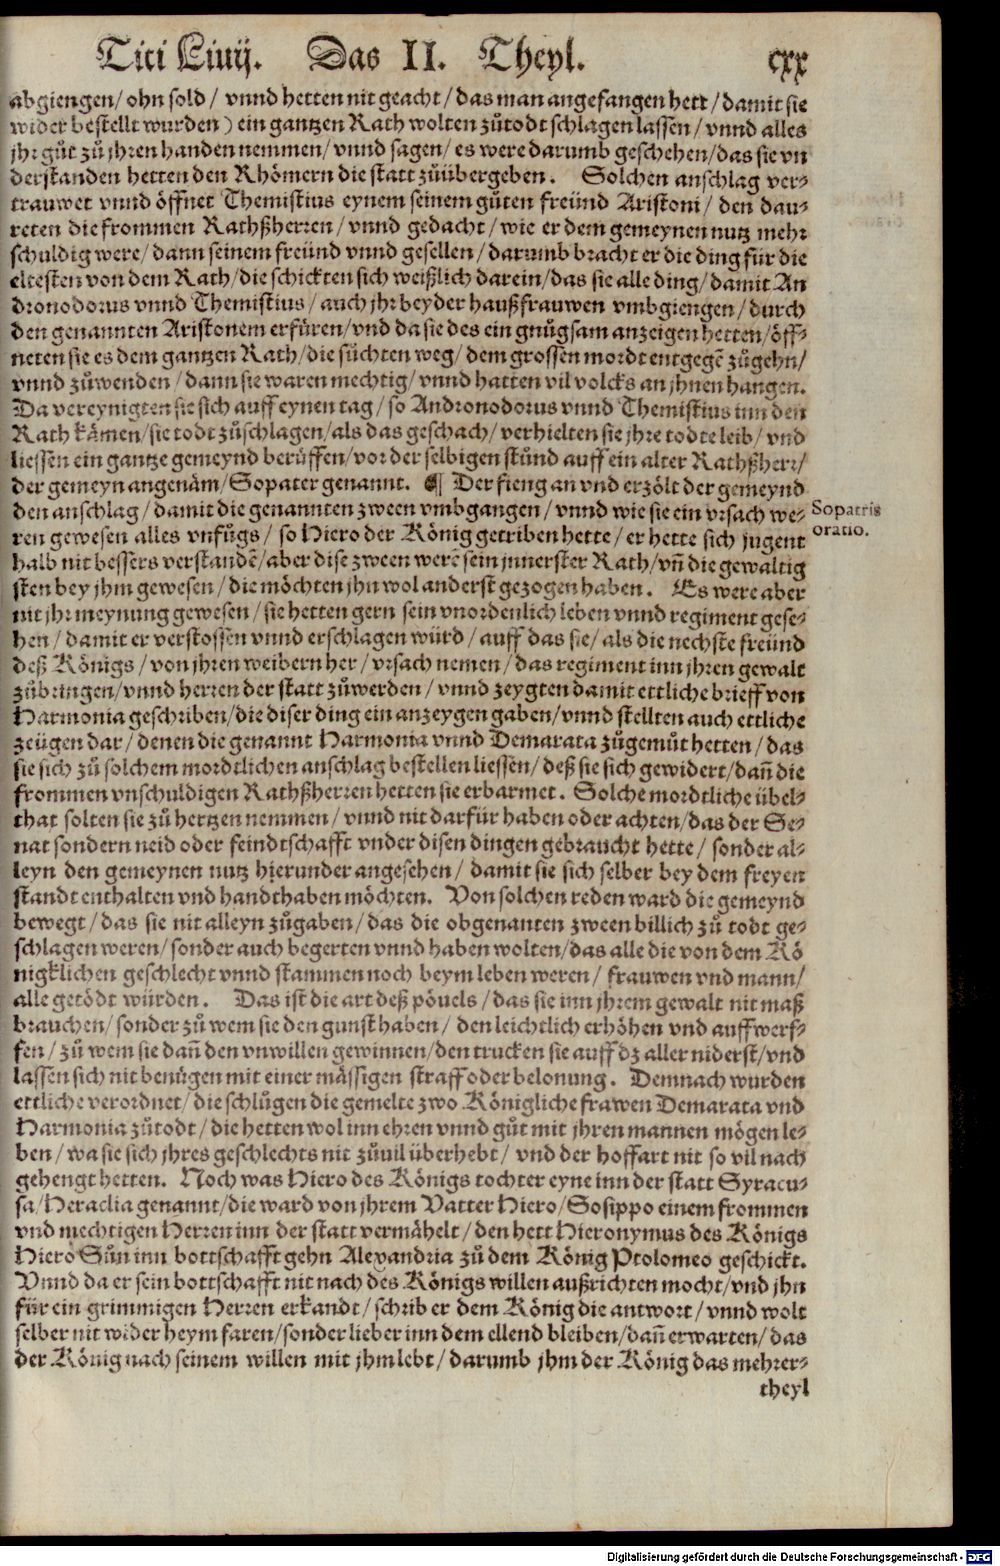 Titi Liuij. Das II. Theyl. cxx
abgiengen/ ohn sold/ vnnd hetten nit geacht/ das man angefangen hett/ damit sie
wider bestellt wurden) ein gantzen Rath wolten zůtodt schlagen lassen/ vnnd alles
jhr gůt zů jhren handen nemmen/ vnnd sagen/ es were darumb geschehen/ das sie vn
derstanden hetten den Rhömern die statt zůübergeben. Solchen anschlag ver⸗
trauwet vnnd öffnet Themistius eynem seinem gůten freünd Aristoni/ den dau⸗
reten die frommen Rathßherren/ vnnd gedacht/ wie er dem gemeynen nutz mehr
schuldig were/ dann seinem freünd vnnd gesellen/ darumb bracht er die ding für die
eltesten von dem Rath/ die schickten sich weißlich darein/ das sie alle ding/ damit An
dronodorus vnnd Themistius/ auch jhr beyder haußfrauwen vmbgiengen/ durch
den genannten Aristonem erfůren/ vnd da sie des ein gnůgsam anzeigen hetten/ öff⸗
neten sie es dem gantzen Rath/ die sůchten weg/ dem grossen mordt entgegē zůgehn/
vnnd zůwenden/ dann sie waren mechtig/ vnnd hatten vil volcks an jhnen hangen.
Da vereynigten sie sich auff eynen tag/ so Andronodorus vnnd Themistius inn den
Rath kämen/ sie todt zůschlagen/ als das geschach/ verhielten sie jhre todte leib/ vnd
liessen ein gantze gemeynd berůffen/ vor der selbigen stůnd auff ein alter Rathßherr/
der gemeyn angenäm/ Sopater genannt. ¶ Der fieng an vnd erzölt der gemeynd
den anschlag/ damit die genannten zween vmbgangen/ vnnd wie sie ein vrsach we⸗
Sopatris
oratio.
ren gewesen alles vnfůgs/ so Hiero der König getriben hette/ er hette sich jugent
halb nit bessers verstandē/ aber dise zween werē sein jnnerster Rath/ vn̄ die gewaltig
sten bey jhm gewesen/ die möchten jhn wol anderst gezogen haben. Es were aber
nit jhr meynung gewesen/ sie hetten gern sein vnordenlich leben vnnd regiment gese⸗
hen/ damit er verstossen vnnd erschlagen würd/ auff das sie/ als die nechste freünd
deß Königs/ von jhren weibern her/ vrsach nemen/ das regiment inn jhren gewalt
zůbringen/ vnnd herren der statt zůwerden/ vnnd zeygten damit ettliche brieff von
Harmonia geschriben/ die diser ding ein anzeygen gaben/ vnnd stellten auch ettliche
zeügen dar/ denen die genannt Harmonia vnnd Demarata zůgemůt hetten/ das
sie sich zů solchem mordtlichen anschlag bestellen liessen/ deß sie sich gewidert/ dañ die
frommen vnschuldigen Rathßherren hetten sie erbarmet. Solche mordtliche übel⸗
that solten sie zů hertzen nemmen/ vnnd nit darfür haben oder achten/ das der Se⸗
nat sondern neid oder feindtschafft vnder disen dingen gebraucht hette/ sonder al⸗
leyn den gemeynen nutz hierunder angesehen/ damit sie sich selber bey dem freyen
standt enthalten vnd handthaben möchten. Von solchen reden ward die gemeynd
bewegt/ das sie nit alleyn zůgaben/ das die obgenanten zween billich zů todt ge⸗
schlagen weren/ sonder auch begerten vnnd haben wolten/ das alle die von dem Kö
nigklichen geschlecht vnnd stammen noch beym leben weren/ frauwen vnd mann/
alle getödt würden. Das ist die art deß pöuels/ das sie inn jhrem gewalt nit maß
brauchen/ sonder zů wem sie den gunst haben/ den leichtlich erhöhen vnd auffwerf⸗
fen/ zů wem sie dañ den vnwillen gewinnen/ den trucken sie auff dz aller niderst/ vnd
lassen sich nit benügen mit einer mässigen straff oder belonung. Demnach wurden
ettliche verordnet/ die schlůgen die gemelte zwo Königliche frawen Demarata vnd
Harmonia zůtodt/ die hetten wol inn ehren vnnd gůt mit jhren mannen mögen le⸗
ben/ wa sie sich jhres geschlechts nit zůuil überhebt/ vnd der hoffart nit so vil nach
gehengt hetten. Noch was Hiero des Königs tochter eyne inn der statt Syracu⸗
sa/ Heraclia genannt/ die ward von jhrem Vatter Hiero/ Sosippo einem frommen
vnd mechtigen Herren inn der statt vermähelt/ den hett Hieronymus des Königs
Hiero Sůn inn bottschafft gehn Alexandria zů dem König Ptolomeo geschickt.
Vnnd da er sein bottschafft nit nach des Königs willen außrichten mocht/ vnd jhn
für ein grimmigen Herren erkandt/ schrib er dem König die antwort/ vnnd wolt
selber nit wider heym faren/ sonder lieber inn dem ellend bleiben/ dañ erwarten/ das
der König nach seinem willen mit jhm lebt/ darumb jhm der König das mehrer⸗
theyl
Digitalisierung gefördert durch die Deutsche Forschungsgemeinschaft - DFG